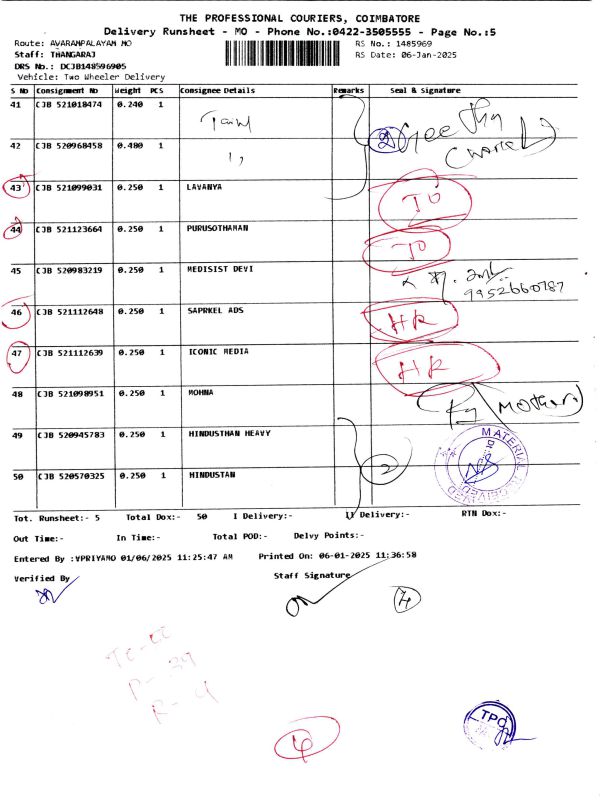 THE PROFESSIONAL COURIERS, COIMBATORE
Delivery Runsheet - MO - Phone No.:0422-3505555 - Page No.:5
Route: AVARAMPALAYAM MO
RS No.: 1485969
Staff: THANGARAJ
RS Date: 06-Jan-2025
DRS No.: DCJB148596905
Vehicle: Two Wheeler Delivery
S No Consignment No Weight PCS Consignee Details Remarks Seal & Signature
41 CJB 521018474 0.240 1
42 CJB 520968458 0.480 1 2
43 CJB 521099031 0.250 1 LAVANYA IO
44 CJB 521123664 0.250 1 PURUSOTHAMAN IO
45 CJB 520983219 0.250 1 MEDISIST DEVI 9952660787
46 CJB 521112648 0.250 1 SAPRKEL ADS HR
47 CJB 521112639 0.250 1 ICONIC MEDIA HR
48 CJB 521098951 0.250 1 MOHNA (Mother)
49 CJB 520945783 0.250 1 HINDUSTHAN HEAVY MATERIAL
50 CJB 520570325 0.250 1 HINDUSTAN 2 RECEIVED
Tot. Runsheet:- 5 Total Dox:- 50 I Delivery:- II Delivery:- RTN Dox:-
Out Time:- In Time:- Total POD:- Delvy Points:-
Entered By :VPRIYAMO 01/06/2025 11:25:47 AM Printed On: 06-01-2025 11:36:58
Verified By Staff Signature
TPC